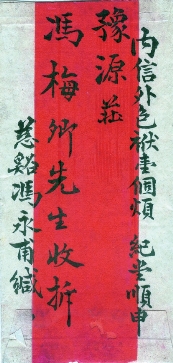 內信外包袱壹個煩 紀堂順申
豫源莊
馮梅卿先生收拆
慈谿馮永甫緘